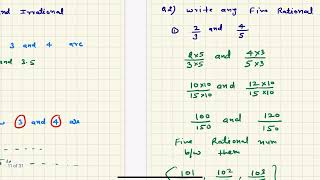 and Irrational
3 and 4 are
and 3.5
3 and 4 are
11 of 31
Q.2) Write any Five Rational
① 2/3 and 4/5
2×5/3×5 and 4×3/5×3
10×10/15×10 and 12×10/15×10
100/150 and 120/150
Five Rational num
b/w them
101 , 102 , 103